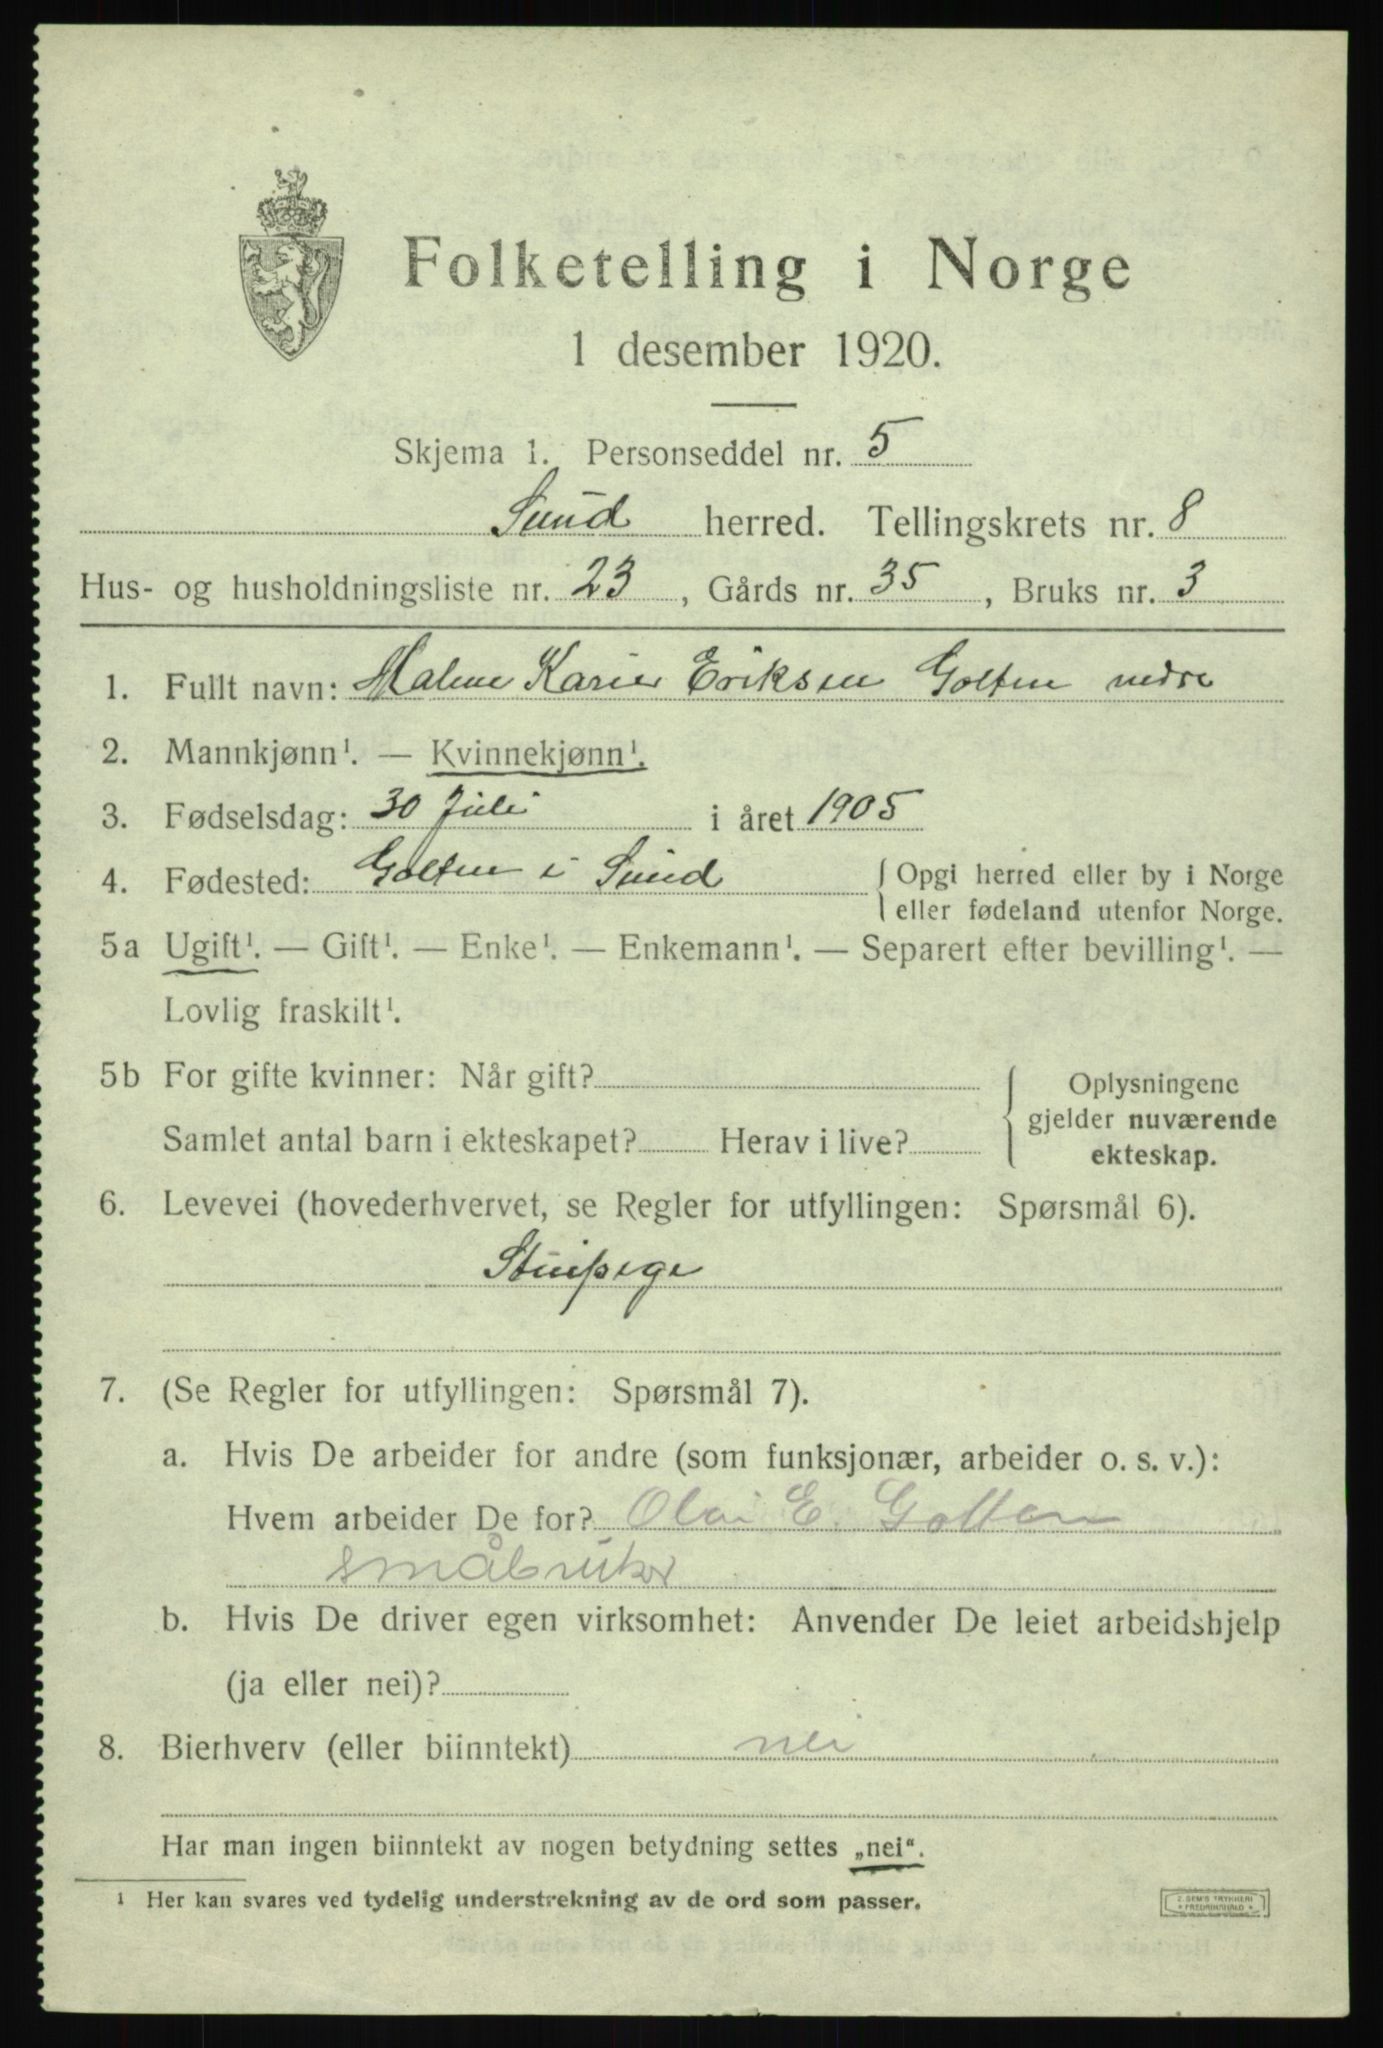 Folketelling i Norge
1 desember 1920.
Skjema 1. Personseddel nr. 5
Sund herred. Tellingskrets nr. 8
Hus- og husholdningsliste nr. 23, Gårds nr. 35, Bruks nr. 3
1. Fullt navn: Malene Karie Eriksen Golten nedre
2. Mannkjønn¹. — Kvinnekjønn¹.
3. Fødselsdag: 30 Juli i året 1905
4. Fødested: Golten i Sund { Opgi herred eller by i Norge
eller fødeland utenfor Norge.
5a Ugift¹. — Gift¹. — Enke¹. — Enkemann¹. — Separert efter bevilling¹. —
Lovlig fraskilt¹.
5b For gifte kvinner: Når gift?
Samlet antal barn i ekteskapet? Herav i live?
{ Oplysningene
gjelder nuværende
ekteskap.
6. Levevei (hovederhvervet, se Regler for utfyllingen: Spørsmål 6).
7. (Se Regler for utfyllingen: Spørsmål 7).
a. Hvis De arbeider for andre (som funksjonær, arbeider o. s. v.):
Hvem arbeider De for? Olai E. Golten
småbruker
b. Hvis De driver egen virksomhet: Anvender De leiet arbeidshjelp
(ja eller nei)?
8. Bierhverv (eller biinntekt) nei
Har man ingen biinntekt av nogen betydning settes „nei“.
¹ Her kan svares ved tydelig understrekning av de ord som passer.
Z. SEM'S TRYKKERI
* FREDRIKSHALD *